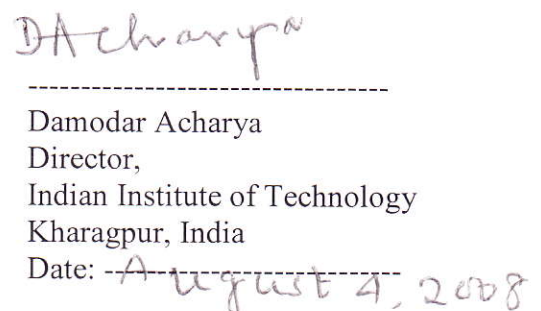 DAcharya
---------------------------------
Damodar Acharya
Director,
Indian Institute of Technology
Kharagpur, India
Date: August 4, 2008